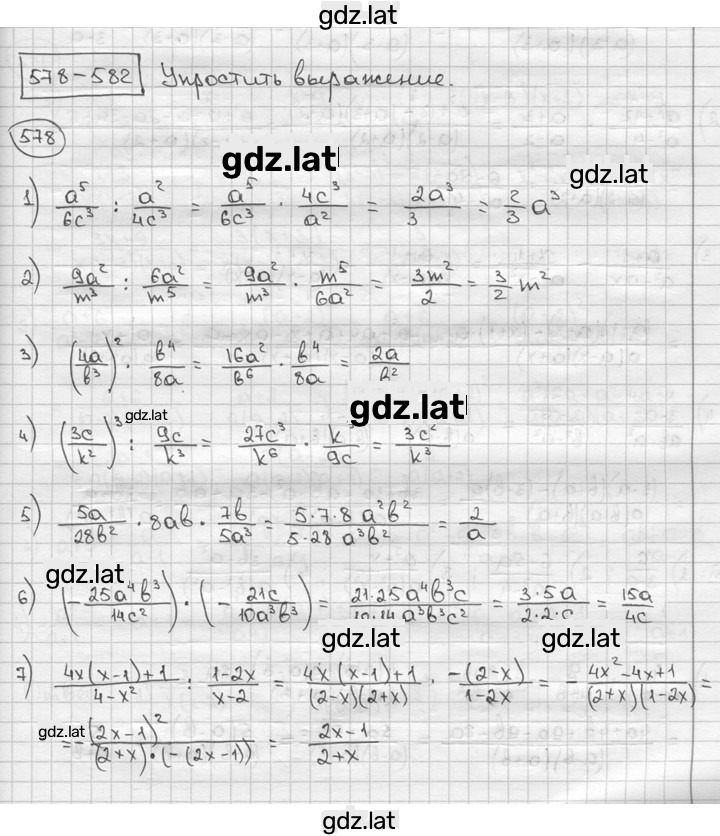 gdz.lat
578-582 Упростить выражение.
578
gdz.lat
gdz.lat
1) a⁵/6c³ : a²/4c³ = a⁵/6c³ · 4c³/a² = 2a³/3 = 2/3 a³
2) 9a²/m³ : 6a²/m⁵ = 9a²/m³ · m⁵/6a² = 3m²/2 = 3/2 m²
3) (4a/b³)² · b⁴/8a = 16a²/b⁶ · b⁴/8a = 2a/b²
gdz.lat
gdz.lat
4) (3c/k²)³ : 9c/k³ = 27c³/k⁶ · k³/9c = 3c²/k³
5) 5a/28b² · 8ab · 7b/5a³ = 5·7·8 a²b²/5·28 a³b² = 2/a
gdz.lat
6) (-25a⁴b³/14c²) · (-21c/10a³b³) = 21·25a⁴b³c/10·14a³b³c² = 3·5a/2·2·c = 15a/4c
gdz.lat
gdz.lat
7) 4x(x-1)+1/4-x² : 1-2x/x-2 = 4x(x-1)+1/(2-x)(2+x) · -(2-x)/1-2x = - 4x²-4x+1/(2+x)(1-2x) =
gdz.lat
= -(2x-1)²/(2+x)·(-(2x-1)) = 2x-1/2+x
gdz.lat